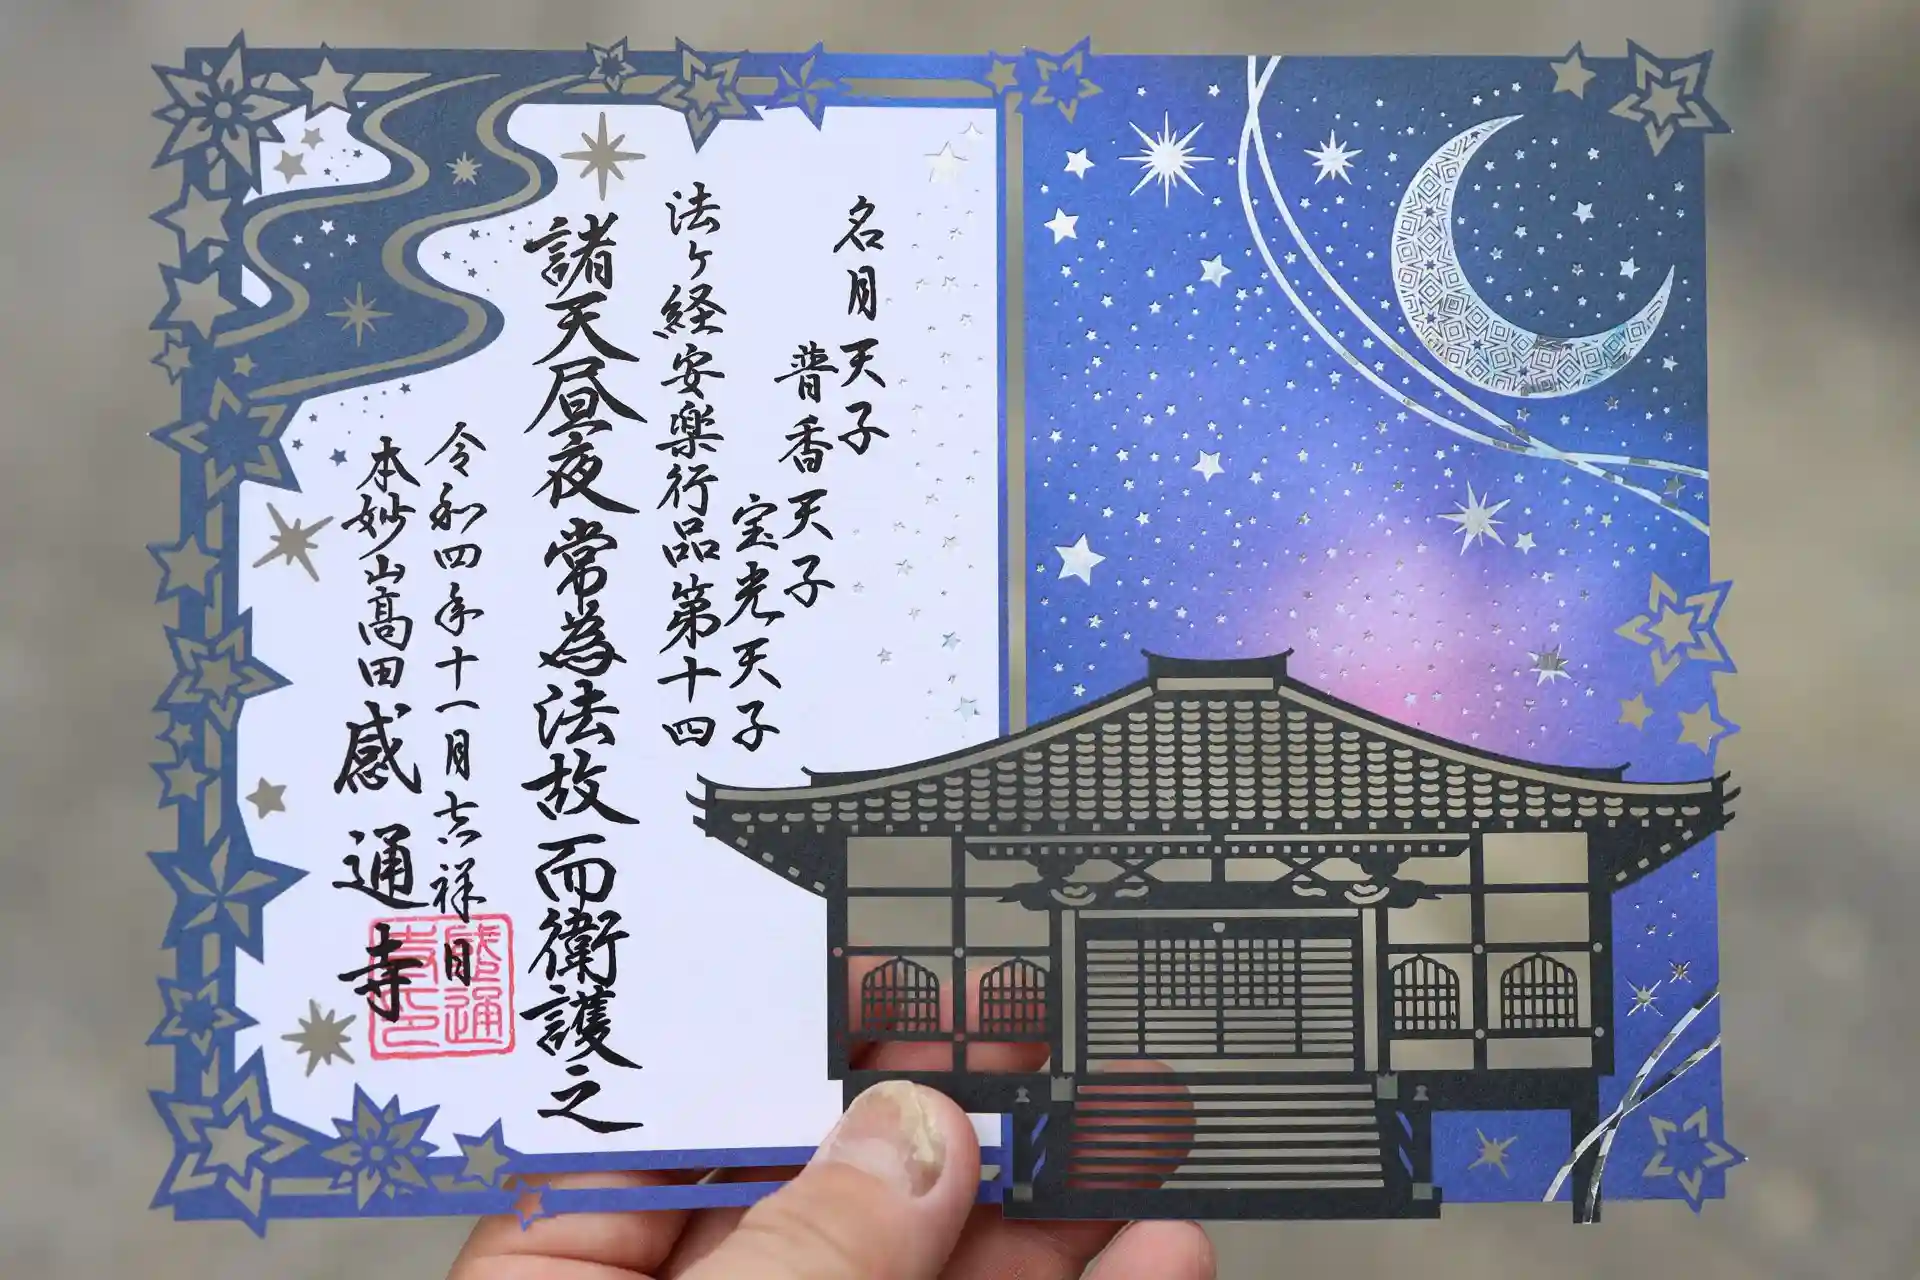 名月天子
普香天子
宝光天子
法ヶ経安楽行品第十四
諸天昼夜常為法故而衛護之
令和四年十一月吉祥日
本妙山高田感通寺
感通寺印